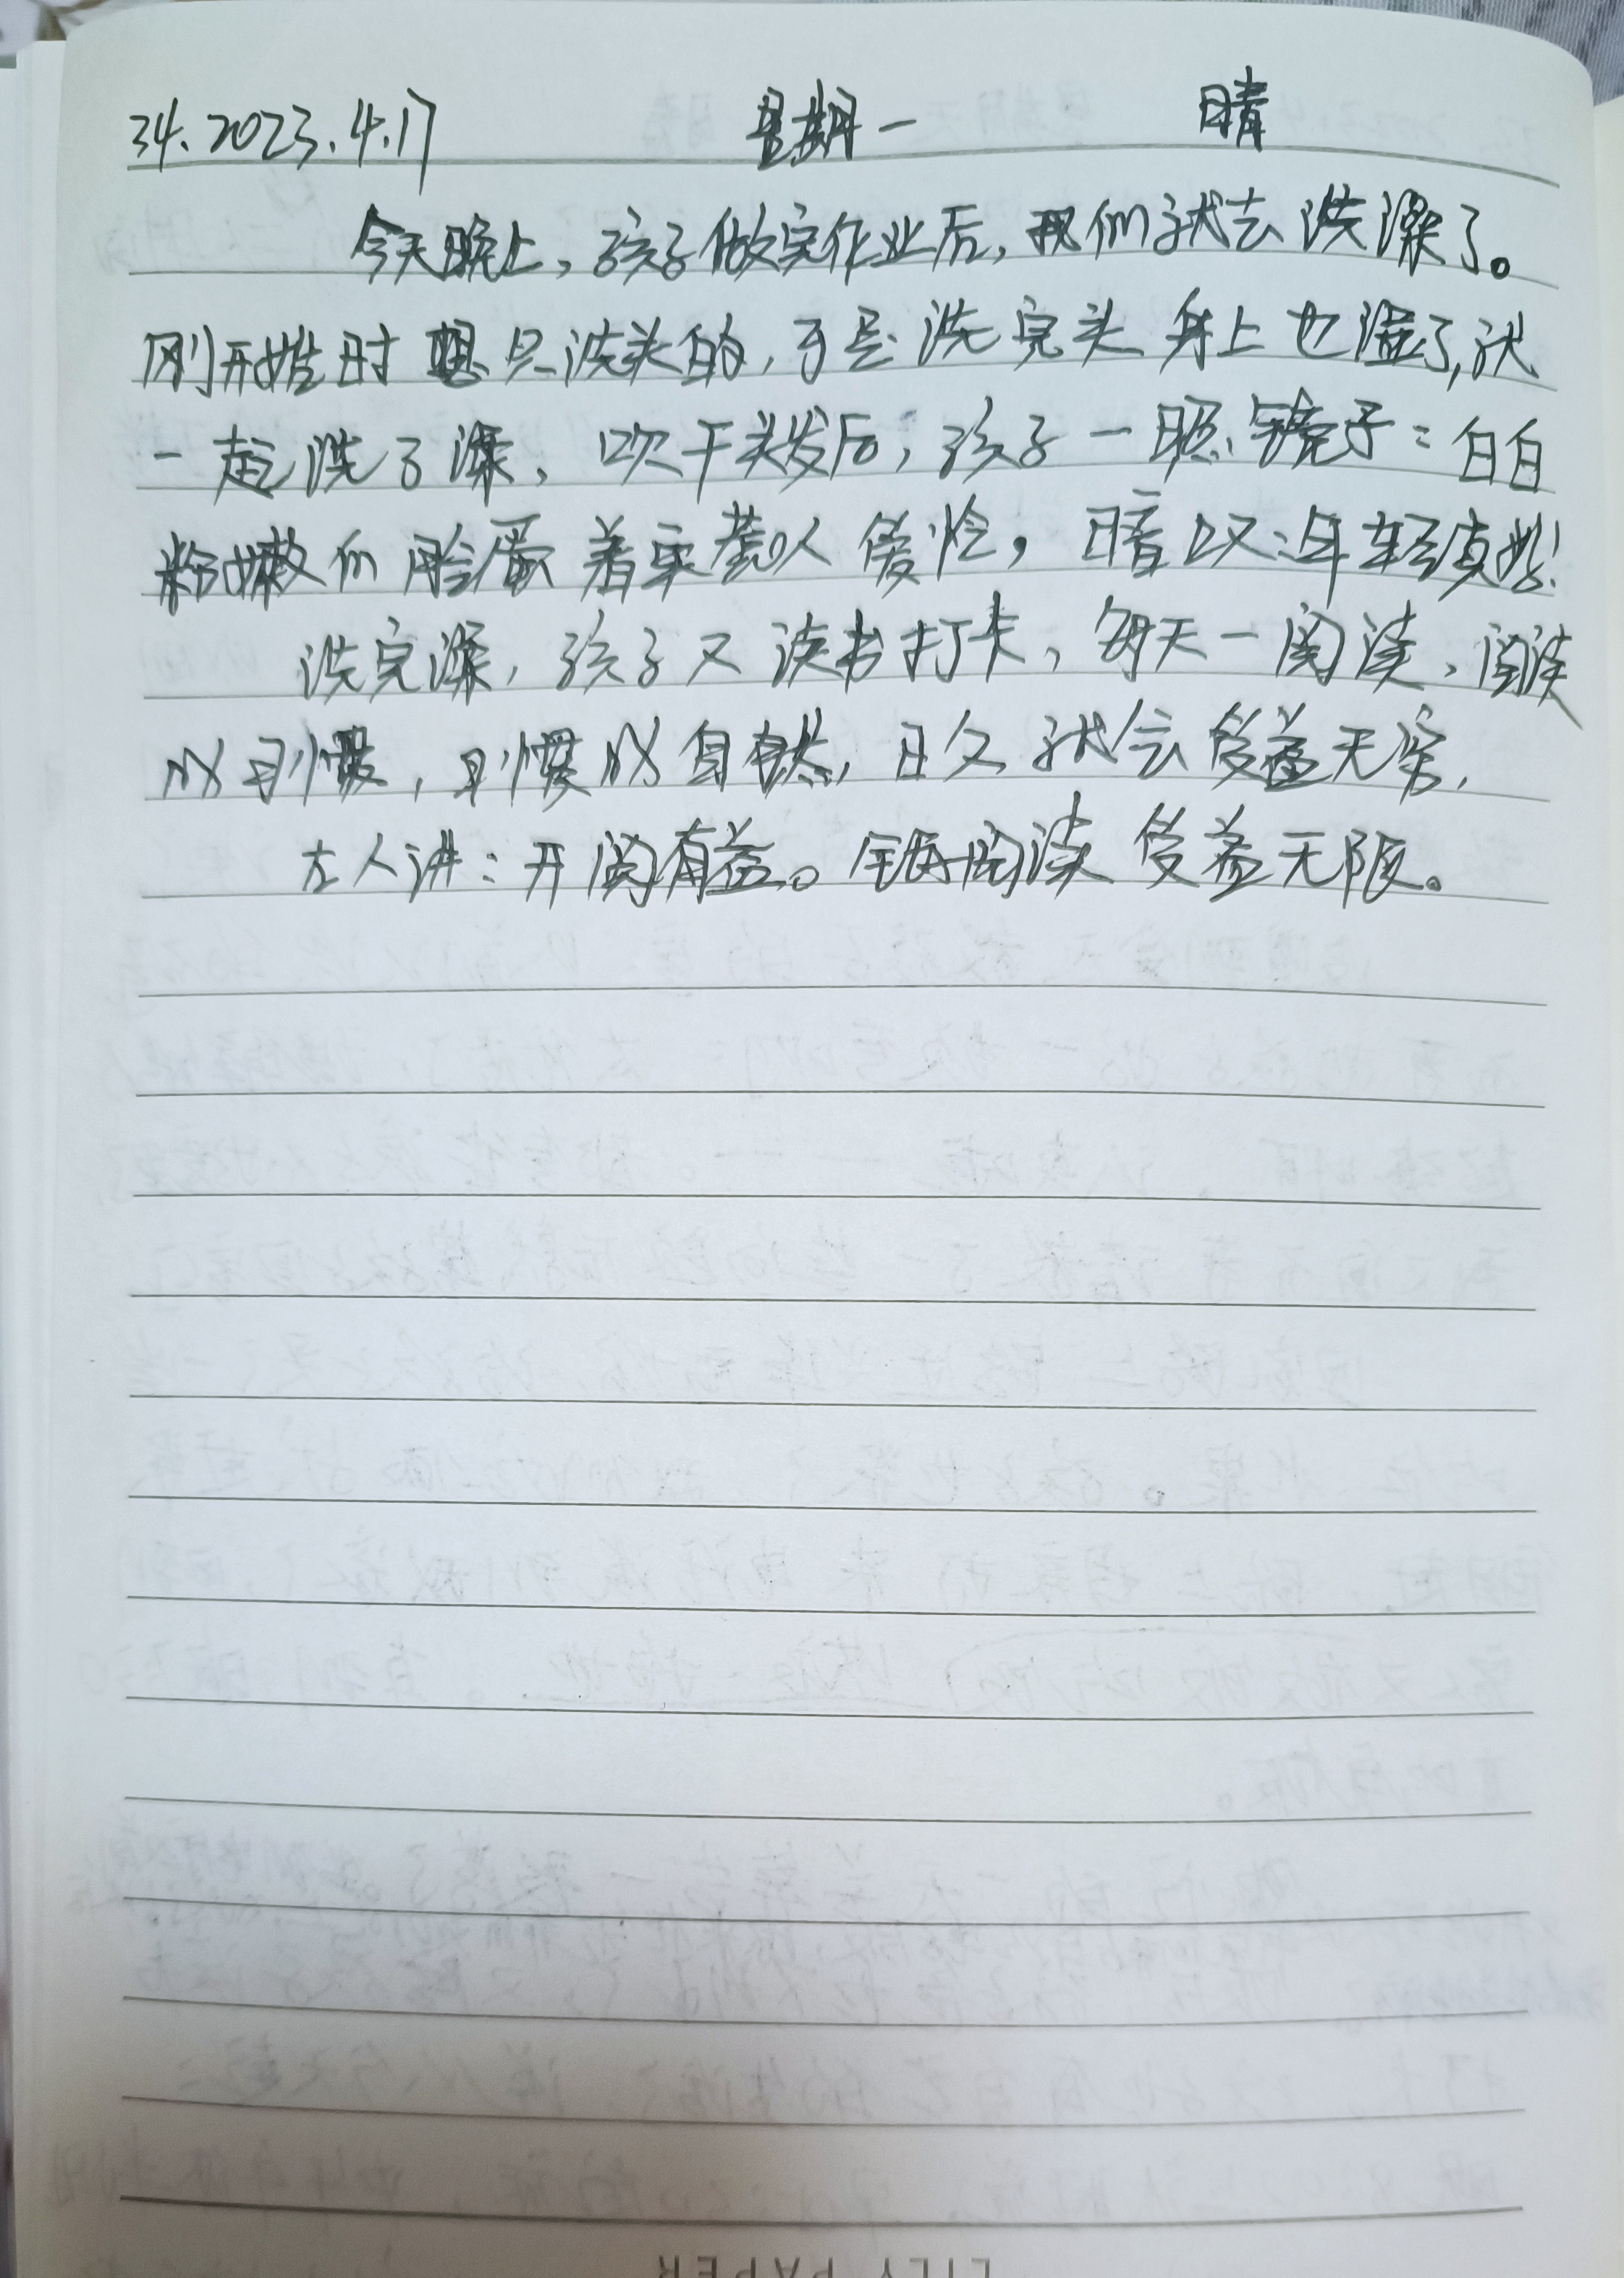 34. 2023.4.17 星期一 晴
今天晚上，孩子做完作业后，我们就去洗澡了。
刚开始时想只洗头的，于是洗完头身上也湿了，就
一起洗了澡，吹干头发后，孩子一照镜子：白白
粉嫩的脸蛋着实惹人爱怜，暗叹：年轻真好！
洗完澡，孩子又读书打卡，每天一阅读，阅读
成习惯，习惯成自然，日久就会受益无穷，
古人讲：开阅有益。每阅读受益无限。
LILY PAPER